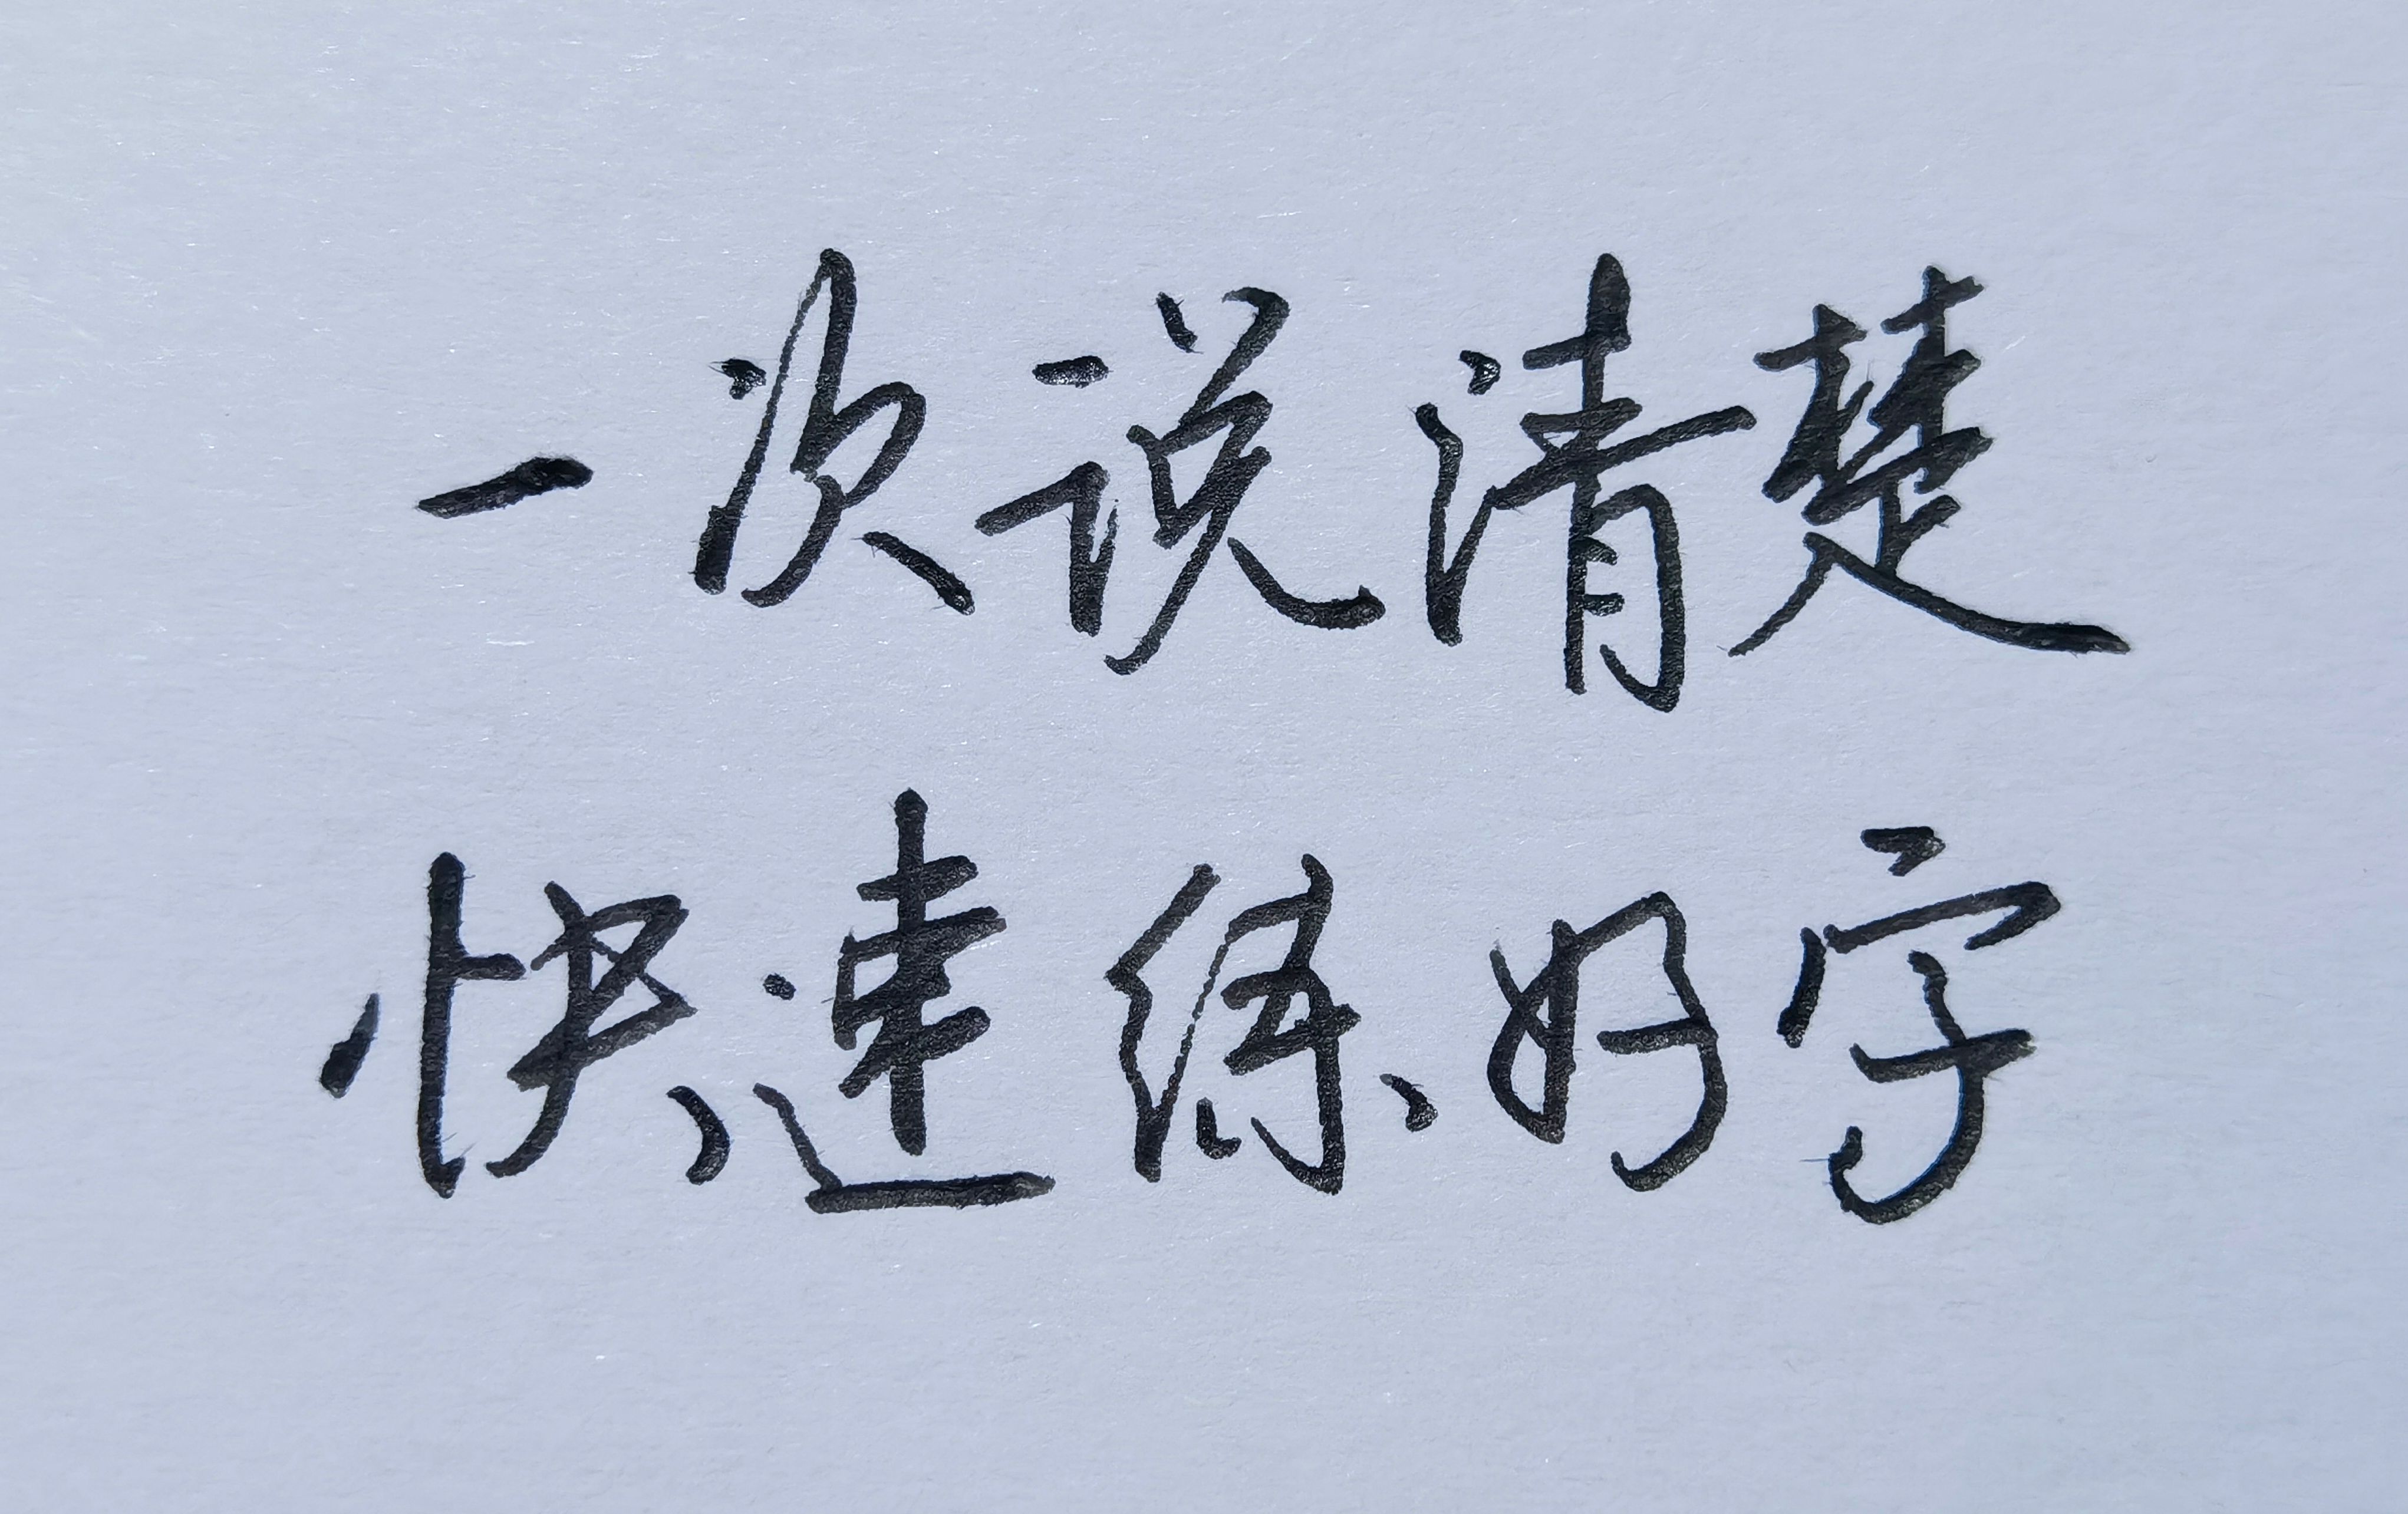 一次说清楚
快速练好字